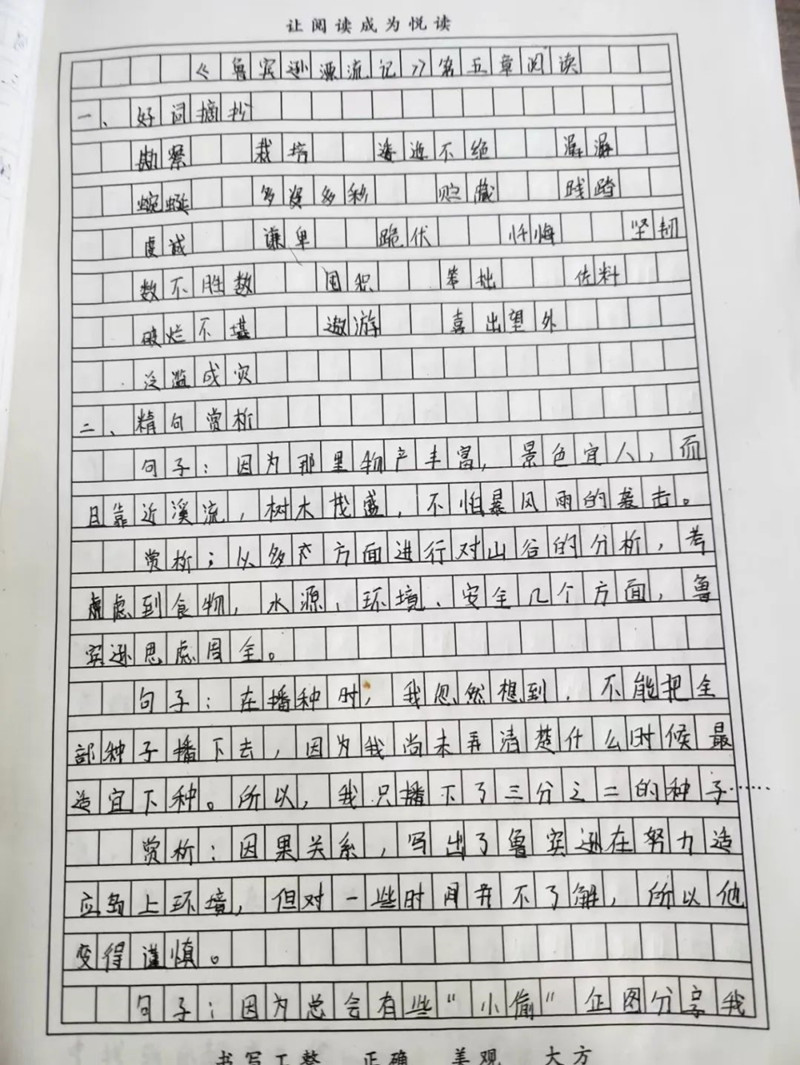 让阅读成为悦读
《鲁宾逊漂流记》第五章阅读
一、好词摘抄
勘察 栽培 连延不绝 潺潺
蜿蜒 多姿多彩 贮藏 践踏
虔诚 谦卑 跪伏 忏悔 坚韧
数不胜数 囤积 笨拙 佐料
破烂不堪 遨游 喜出望外
泛滥成灾
二、精句赏析
句子：因为那里物产丰富，景色宜人，而
且靠近溪流，树木茂盛，不怕暴风雨的袭击。
赏析：以多个方面进行对山谷的分析，考
虑到食物，水源、环境、安全几个方面，鲁
宾逊思虑周全。
句子：在播种时，我忽然想到，不能把全
部种子播下去，因为我尚未弄清楚什么时候最
适宜下种。所以，我只播下了三分之二的种子……
赏析：因果关系，写出了鲁宾逊在努力适
应岛上环境，但对一些时间并不了解，所以他
变得谨慎。
句子：因为总会有些“小偷”企图分享我
书写工整 正确 美观 大方